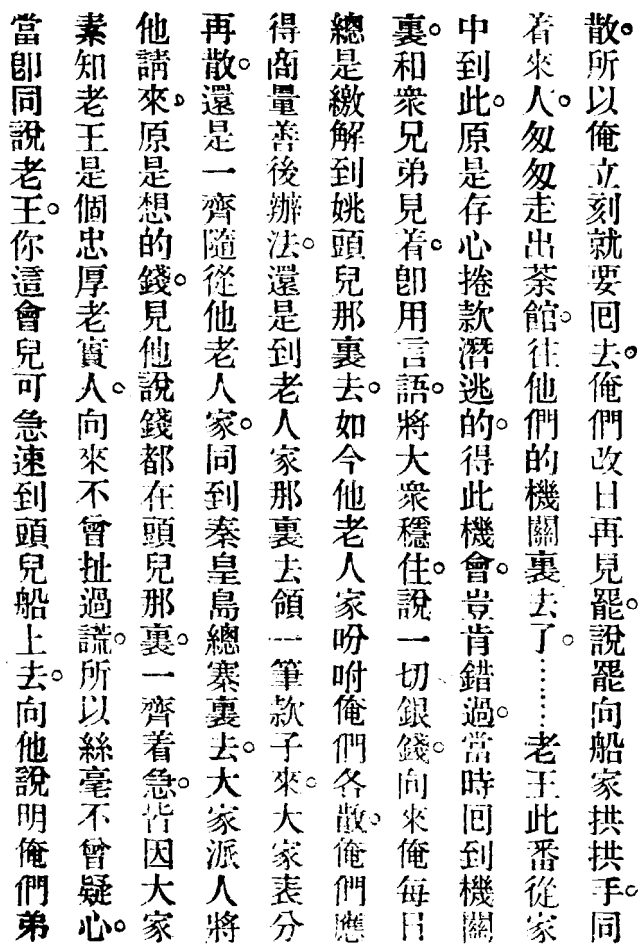 散。所以俺立刻就要囘去。俺們改日再見罷。說罷向船家拱拱手。同
着來人。匆匆走出茶館。往他們的機關裏去了。……老王此番從家
中到此。原是存心捲款潛逃的。得此機會。豈肯錯過。當時囘到機關
裏。和衆兄弟見着。卽用言語。將大衆穩住。說一切銀錢。向來俺每日
總是繳解到姚頭兒那裏去。如今他老人家吩咐俺們各散。俺們應
得商量善後辦法。還是到老人家那裏去領一筆款子來。大家表分
再散。還是一齊隨從他老人家。同到秦皇島總寨裏去。大家派人將
他請來。原是想的錢。見他說錢都在頭兒那裏。一齊着急。皆因大家
素知老王是個忠厚老實人。向來不曾扯過謊。所以絲毫不曾疑心。
當卽同說老王。你這會兒可急速到頭兒船上去。向他說明俺們弟